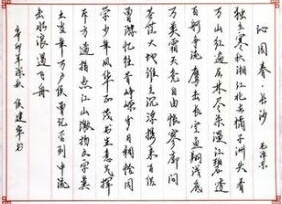 沁园春·长沙
毛泽东
独立寒秋湘江北去橘子洲头看
万山红遍层林尽染漫江碧透
百舸争流鹰击长空鱼翔浅底
万类霜天竞自由怅寥廓问
苍茫大地谁主沉浮携来百侣
曾游忆往昔峥嵘岁月稠恰同
学少年风华正茂书生意气挥
斥方遒指点江山激扬文字粪
土当年万户侯曾记否到中流
击水浪遏飞舟
辛卯年秋 建华书